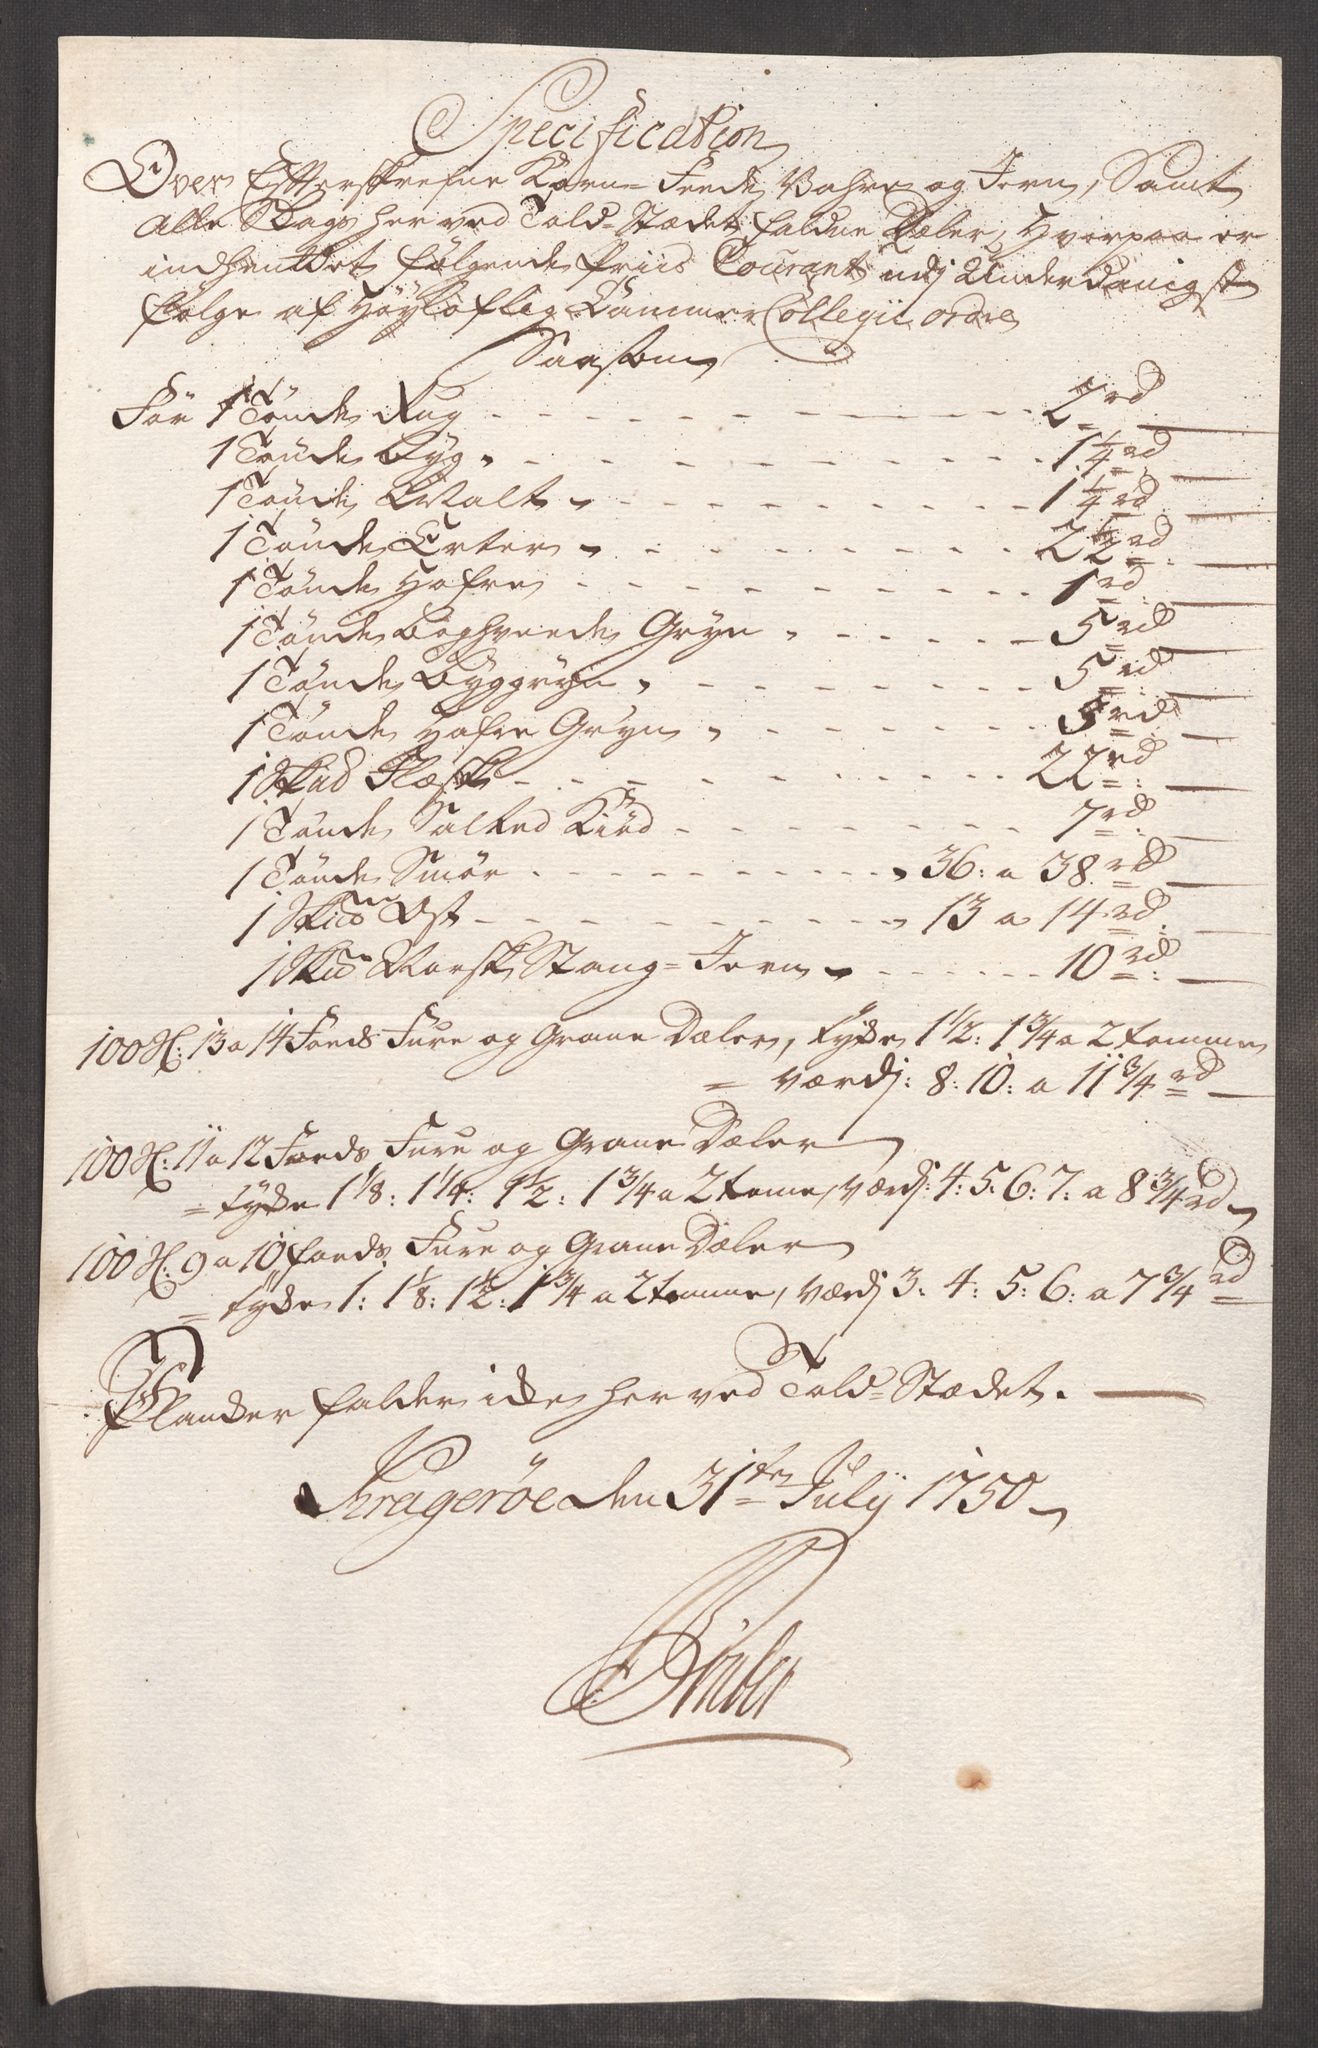 Specification
Over Efterskrefne Korn= Feede Vahre og Jern, Samt
alle Slags her ved Told=Stædet faldne Dæler, Hvorpaa er
indhentet følgende Priis Courant udj Underdanigst
følge af Høyloflig Cammer Collegii ordre
Saasom
For 1 Tønde Rug - - - 2 rd
1 Tønde Byg - - - 1 1/4 rd
1 Tønde Malt - - - 1 1/4 rd
1 Tønde Erter - - - 2 1/2 rd
1 Tønde Hafre - - - 1 rd
1 Tønde Boghveede Gryn - - - 5 rd
1 Tønde Byggryn - - - 5 rd
1 Tønde Hafre Gryn - - - 5 rd
1 Skud Flæsk - - - 22 rd
1 Tønde Salted Kiød - - - 7 rd
1 Tønde Smør - - - 36: a 38 rd
1 Ost - - - 13 a 14 rd
1 Norsk Stang=Jern - - - 10 rd
100 H: 13 a 14 Foeds Fure og Grane Dæler, tyke 1 1/2: 1 3/4 a 2 tomme
= værdj: 8: 10: a 11 3/4 rd
100 H: 11 a 12 Foeds Fure og Grane Dæler
= tyke 1 1/8: 1 1/4: 1 1/2: 1 3/4 a 2 tome, værdj: 4: 5: 6: 7: a 8 3/4 rd
100 H: 9 a 10 foeds Fure og Grane Dæler
= tyke 1: 1 1/8: 1 1/2: 1 3/4 a 2 tomme, værdj 3: 4: 5: 6: a 7 3/4 rd
Planker falder ike her ved Told=Stædet.
Kragerøe den 31te Julij 1750